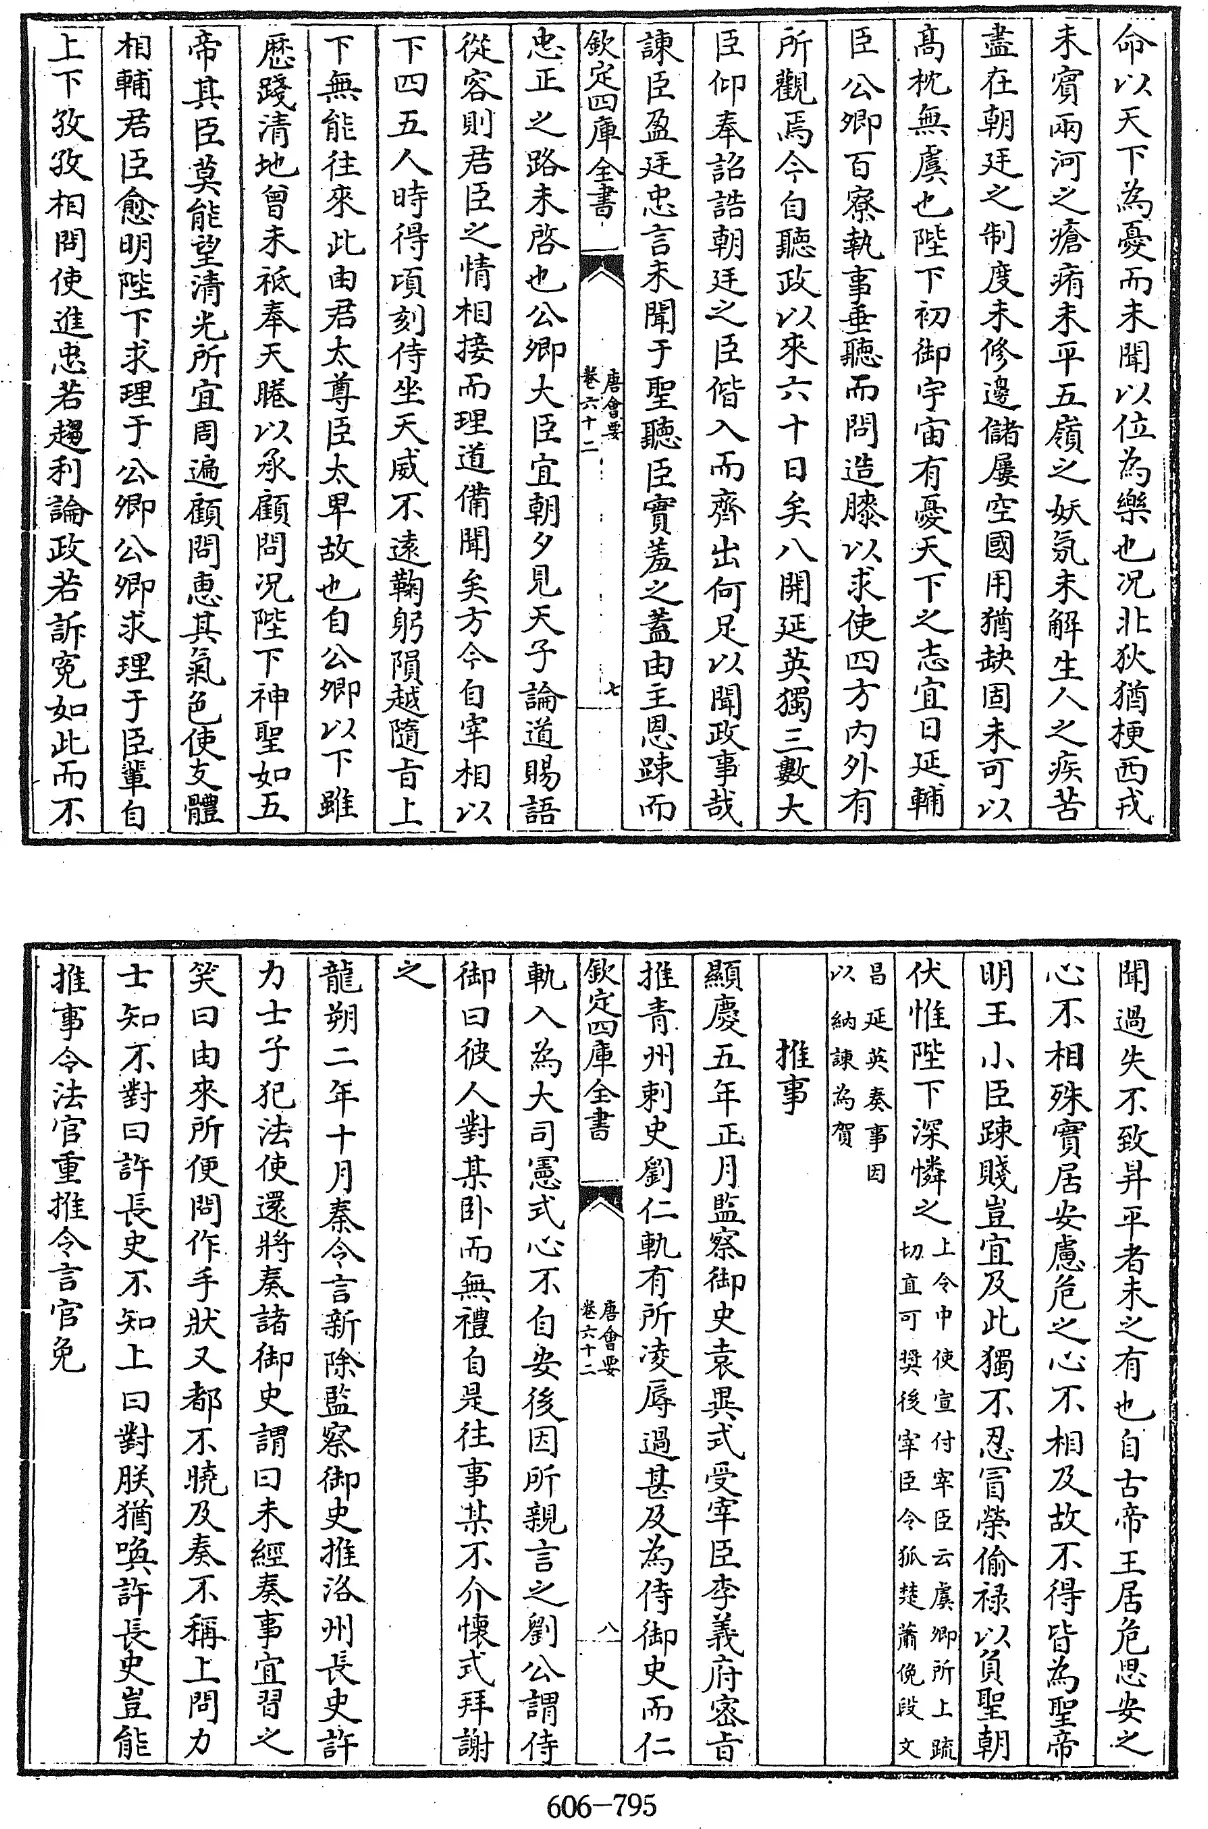 命以天下為憂而未聞以位為樂也况北狄猶梗西戎
未賓兩河之瘡痏未平五嶺之妖氛未解生人之疾苦
盡在朝廷之制度未修邊儲屢空國用猶缺固未可以
髙枕無虞也陛下初御宇宙有憂天下之志宜日延輔
臣公卿百寮執事垂聽而問造膝以求使四方内外有
所觀焉今自聽政以來六十日矣八開延英獨三數大
臣仰奉詔誥朝廷之臣偕入而齊出何足以聞政事哉
諫臣盈廷忠言未聞于聖聽臣實羞之蓋由主恩踈而
欽定四庫全書
唐會要
卷六十二
七
忠正之路未啓也公卿大臣宜朝夕見天子論道賜語
從容則君臣之情相接而理道備聞矣方今自宰相以
下四五人時得頃刻侍坐天威不遠鞠躬隕越隨旨上
下無能往來此由君太尊臣太卑故也自公卿以下雖
歴踐清地曾未祗奉天睠以承顧問况陛下神聖如五
帝其臣莫能望清光所宜周遍顧問惠其氣色使支體
相輔君臣愈明陛下求理于公卿公卿求理于臣輩自
上下孜孜相問使進忠若趨利論政若訴寃如此而不
聞過失不致昇平者未之有也自古帝王居危思安之
心不相殊實居安慮危之心不相及故不得皆為聖帝
明王小臣踈賤豈宜及此獨不忍冒榮偷禄以負聖朝
伏惟陛下深憐之上令中使宣付宰臣云虞卿所上疏
切直可奨後宰臣令狐楚蕭俛段文
昌延英奏事因
以納諫為賀
推事
顯慶五年正月監察御史袁異式受宰臣李義府宻旨
推青州刺史劉仁軌有所凌辱過甚及為侍御史而仁
欽定四庫全書
唐會要
卷六十二
八
軌入為大司憲式心不自安後因所親言之劉公謂侍
御曰彼人對某卧而無禮自是往事某不介懷式拜謝
之
龍朔二年十月秦令言新除監察御史推洛州長史許
力士子犯法使還將奏諸御史謂曰未經奏事宜習之
笑曰由來所便問作手狀又都不曉及奏不稱上問力
士知不對曰許長史不知上曰對朕猶喚許長史豈能
推事令法官重推令言官免
606-795